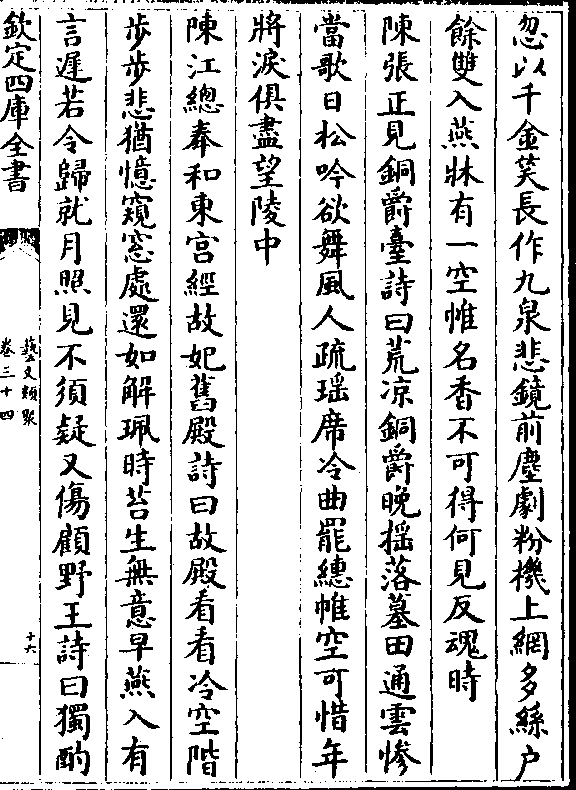 忽以千金笑長作九泉悲鏡前塵劇粉機上網多絲户
餘雙入燕牀有一空帷名香不可得何見反魂時
陳張正見銅爵臺詩曰荒凉銅爵晚揺落墓田通雲惨
當歌日松吟欲舞風人疏瑶席冷曲罷繐帷空可惜年
將淚俱盡望陵中
陳江總奉和東宮經故妃舊殿詩曰故殿看看冷空階
步步悲猶憶窺窓處還如解珮時苔生無意早燕入有
言遲若令歸就月照見不須疑又傷顧野王詩曰獨酌
欽定四庫全書
藝文類聚
卷三十四
十六